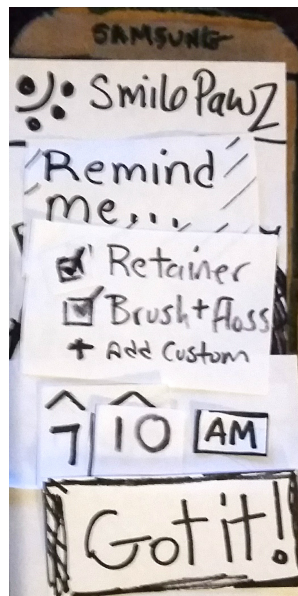 SAMSUNG
SmiloPawZ
Remind
me...
Retainer
Brush+floss
+ Add Custom
7 10 AM
Got it!